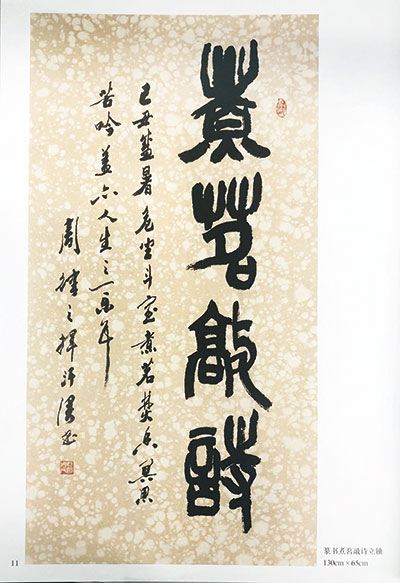 煮茗敲詩
己丑盛暑危坐斗室煮茗焚香冥思
苦吟盖亦人生之一乐耳
周之挥汗
11
篆书煮茗敲诗立轴
130cm×65cm